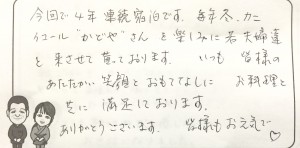 今回で4年連続宿泊です。毎年冬、カニ
イコール"かどや"さんを楽しみに若夫婦達
と来させて貰っております。いつも皆様の
あたたかい笑顔とおもてなしにお料理と
共に満足しております。
ありがとうございます。皆様もお元気で♡